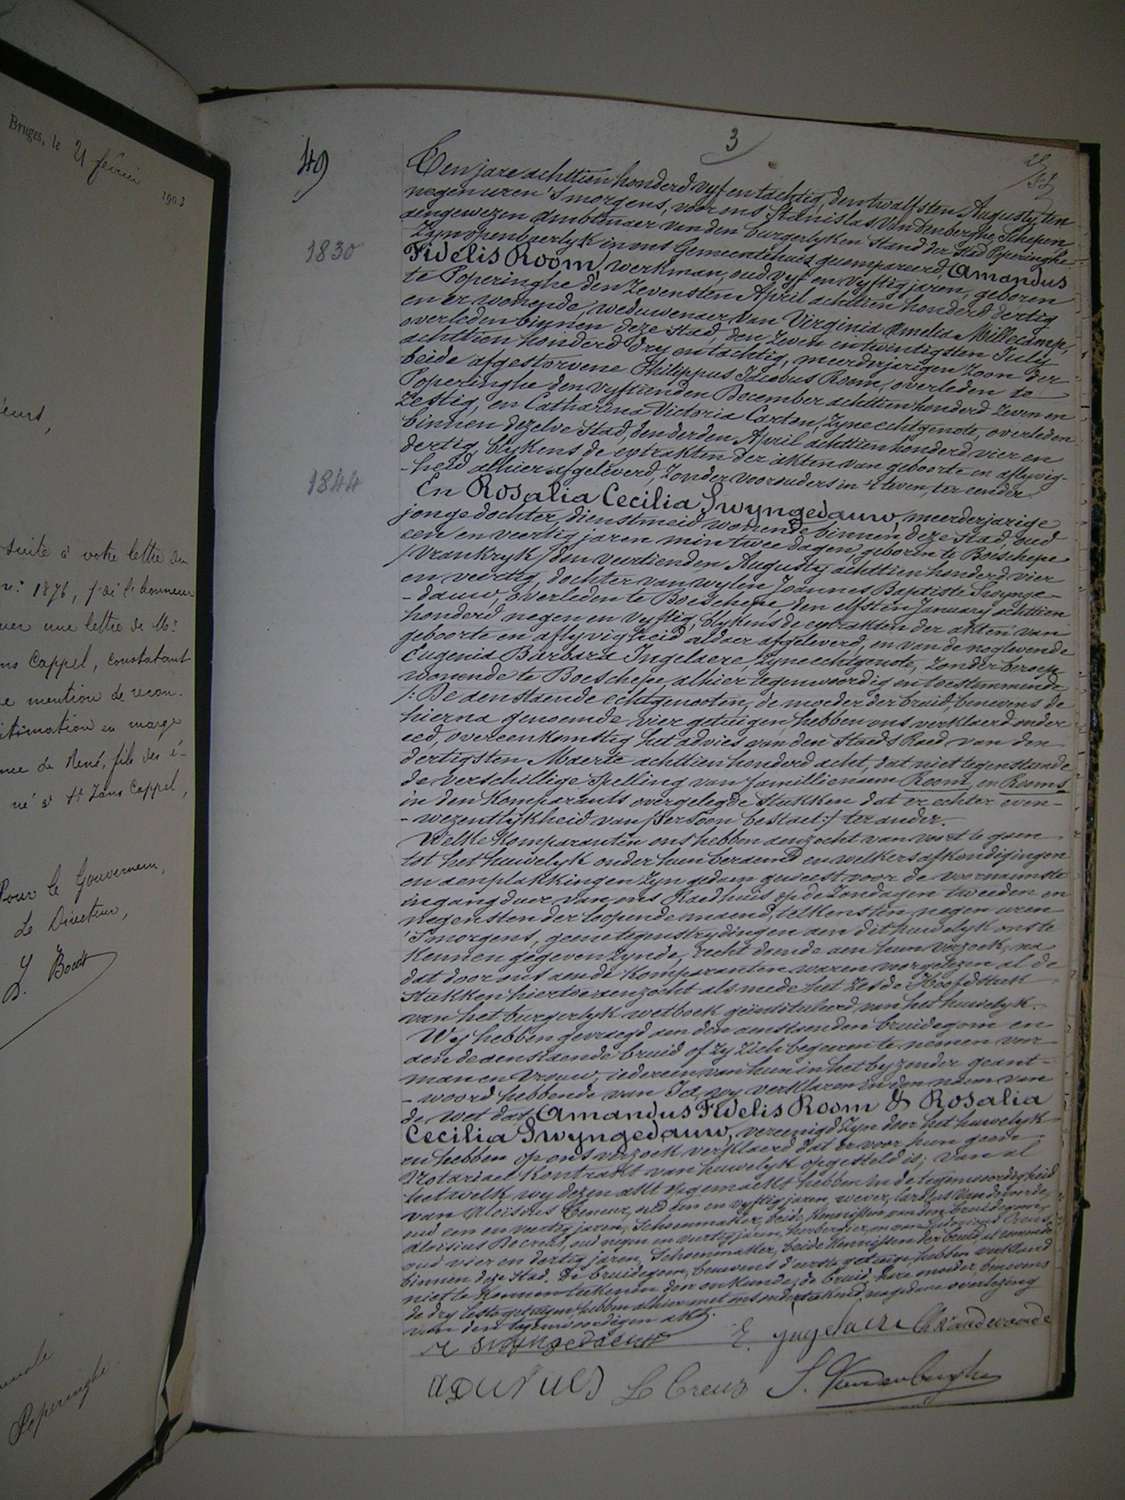 Bruges, le 21 février 1903
eurs,
suite à votre lettre du
n.° 1876, j'ai l'honneur
une lettre de Mr
Cappel, constatant
mention de recon-
itimation en marge
de René, fils des é-
né à St Jans Cappel,
Pour le Gouverneur,
Le Directeur,
Poperinghe
3
49
Ten jare achttien honderd vyf en tachtig, den twaalfsten Augusty ten
negen uren 's morgens, voor ons Stanislas Van den berghe, Schepen
aengewezen ambtenaer van den burgerlyken stand der stad Poperinghe
Zyn openbaerlyk in ons Gemeentehuis gecompareerd, Amandus
1830
Fidelis Room, werkman, oud vyf en vyftig jaren, geboren
te Poperinghe den zevensten April achttien honderd dertig
en er wonende, weduwenaer van Virginia Amelia Millecamp,
overleden binnen deze stad, den zeven en twintigsten July
achttien honderd dry en tachtig, meerderjarigen zoon der
beide afgestorvene Philippus Jacobus Room, overleden te
Poperinghe den vyftienden December achttien honderd zeven en
Zestig, en Catharina Victoria Carton, zyne echtgenote, overleden
binnen dezelve stad, den derden April achttien honderd vier en
dertig, blykens de extrakten der akten van geboorte en aflyvig-
-heid alhier afgeleverd, zonder voorouders in 't leven, ter eender
1844
En Rosalia Cecilia Swyngedauw, meerderjarige
jonge dochter, dienstmeid wonende binnen deze stad, oud
een en veertig jaren min twee dagen, geboren te Boischepe
/Vrankryk/ den veertienden Augusty achttien honderd vier
en veertig, dochter van wylen Joannes Baptiste Swynge-
-dauw, overleden te Boeschepe, den elfsten January achttien
honderd negen en vyftig, blykens de extrakten der akten van
geboorte en aflyvigheid aldaer afgeleverd, en van de nog levende
Eugenia Barbara Ingelaere, zyne echtgenote, zonder beroep
wonende te Boeschepe, alhier tegenwoordig en toestemmende
/: De aenstaende echtgenoten, de moeder der bruid, benevens de
hierna genoemde vier getuigen hebben ons verklaerd onder
eed, overeenkomstig het advies van den Staeds Raed van den
dertigsten Maerte achttien honderd acht, dat niet tegenstaende
de verschillige spelling van famillienaem Room en Rooms
in den komparants overgelegde stukken dat er echter even-
-wezentlykheid van persoon bestaet :/ ter ander.
Welke komparanten ons hebben aenzocht van voort te gaen
tot het huwelyk onder hun beraemd en welkers afkondigingen
en aenplakkingen zyn gedaen geweest voor de voornaamste
ingangdeur van ons Raedhuis op de zondagen tweeden en
negensten der loopende maend, telkens ten negen uren
's morgens, geene tegenstrydingen aen dit huwelyk ons te
kennen gegeven zynde, recht doende aen hun verzoek, na
dat door ons aen de komparanten waren voorgelezen al de
stukken hiertoe aenzocht als mede het zesde Hoofdstuk
van het burgerlyk wetboek geïntituleerd van het huwelyk.
Wy hebben gevraegd aen den aenstaenden bruidegom en
aen de aenstaende bruid of zy zich begeeren te nemen voor
man en vrouw, iedereen van hun in het byzonder geant-
-woord hebbende van Ja, wy verklaren in den naem van
de wet dat Amandus Fidelis Room & Rosalia
Cecilia Swyngedauw, vereenigd zyn door het huwelyk
en hebben op ons verzoek verklaerd dat er voor hun geene
Notariael kontrakt van huwelyk opgesteld is; van al
het welk wy dezen akt opgemaekt hebben in de tegenwoordigheid
van Aloisius een en vyftig jaren, wever,
oud een en veertig jaren, Schoenmaker, beide kennissen van den bruidegom,
Aloisius oud negen en veertig jaren, herbergier, en van
oud vier en dertig jaren, Schoenmaker, beide kennissen der bruid al wonende
binnen deze stad. De bruidegom, benevens d'eerste getuige hebben verklaerd
niet te konnen teekenen door onkunde, de bruid, hare moeder, benevens
de dry leste getuigen hebben alhier met ons onderteekend, na gedane voorlezing
van den tegenwoordigen akt.
R Swyngedauw
E. Ingelaere
S. Vandenberghe